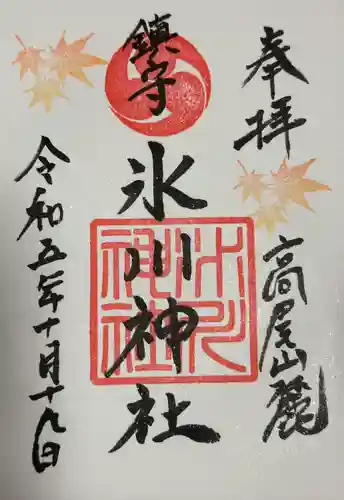 奉拝
高尾山麓
鎮守
氷川神社
氷川神社
令和五年十月十九日